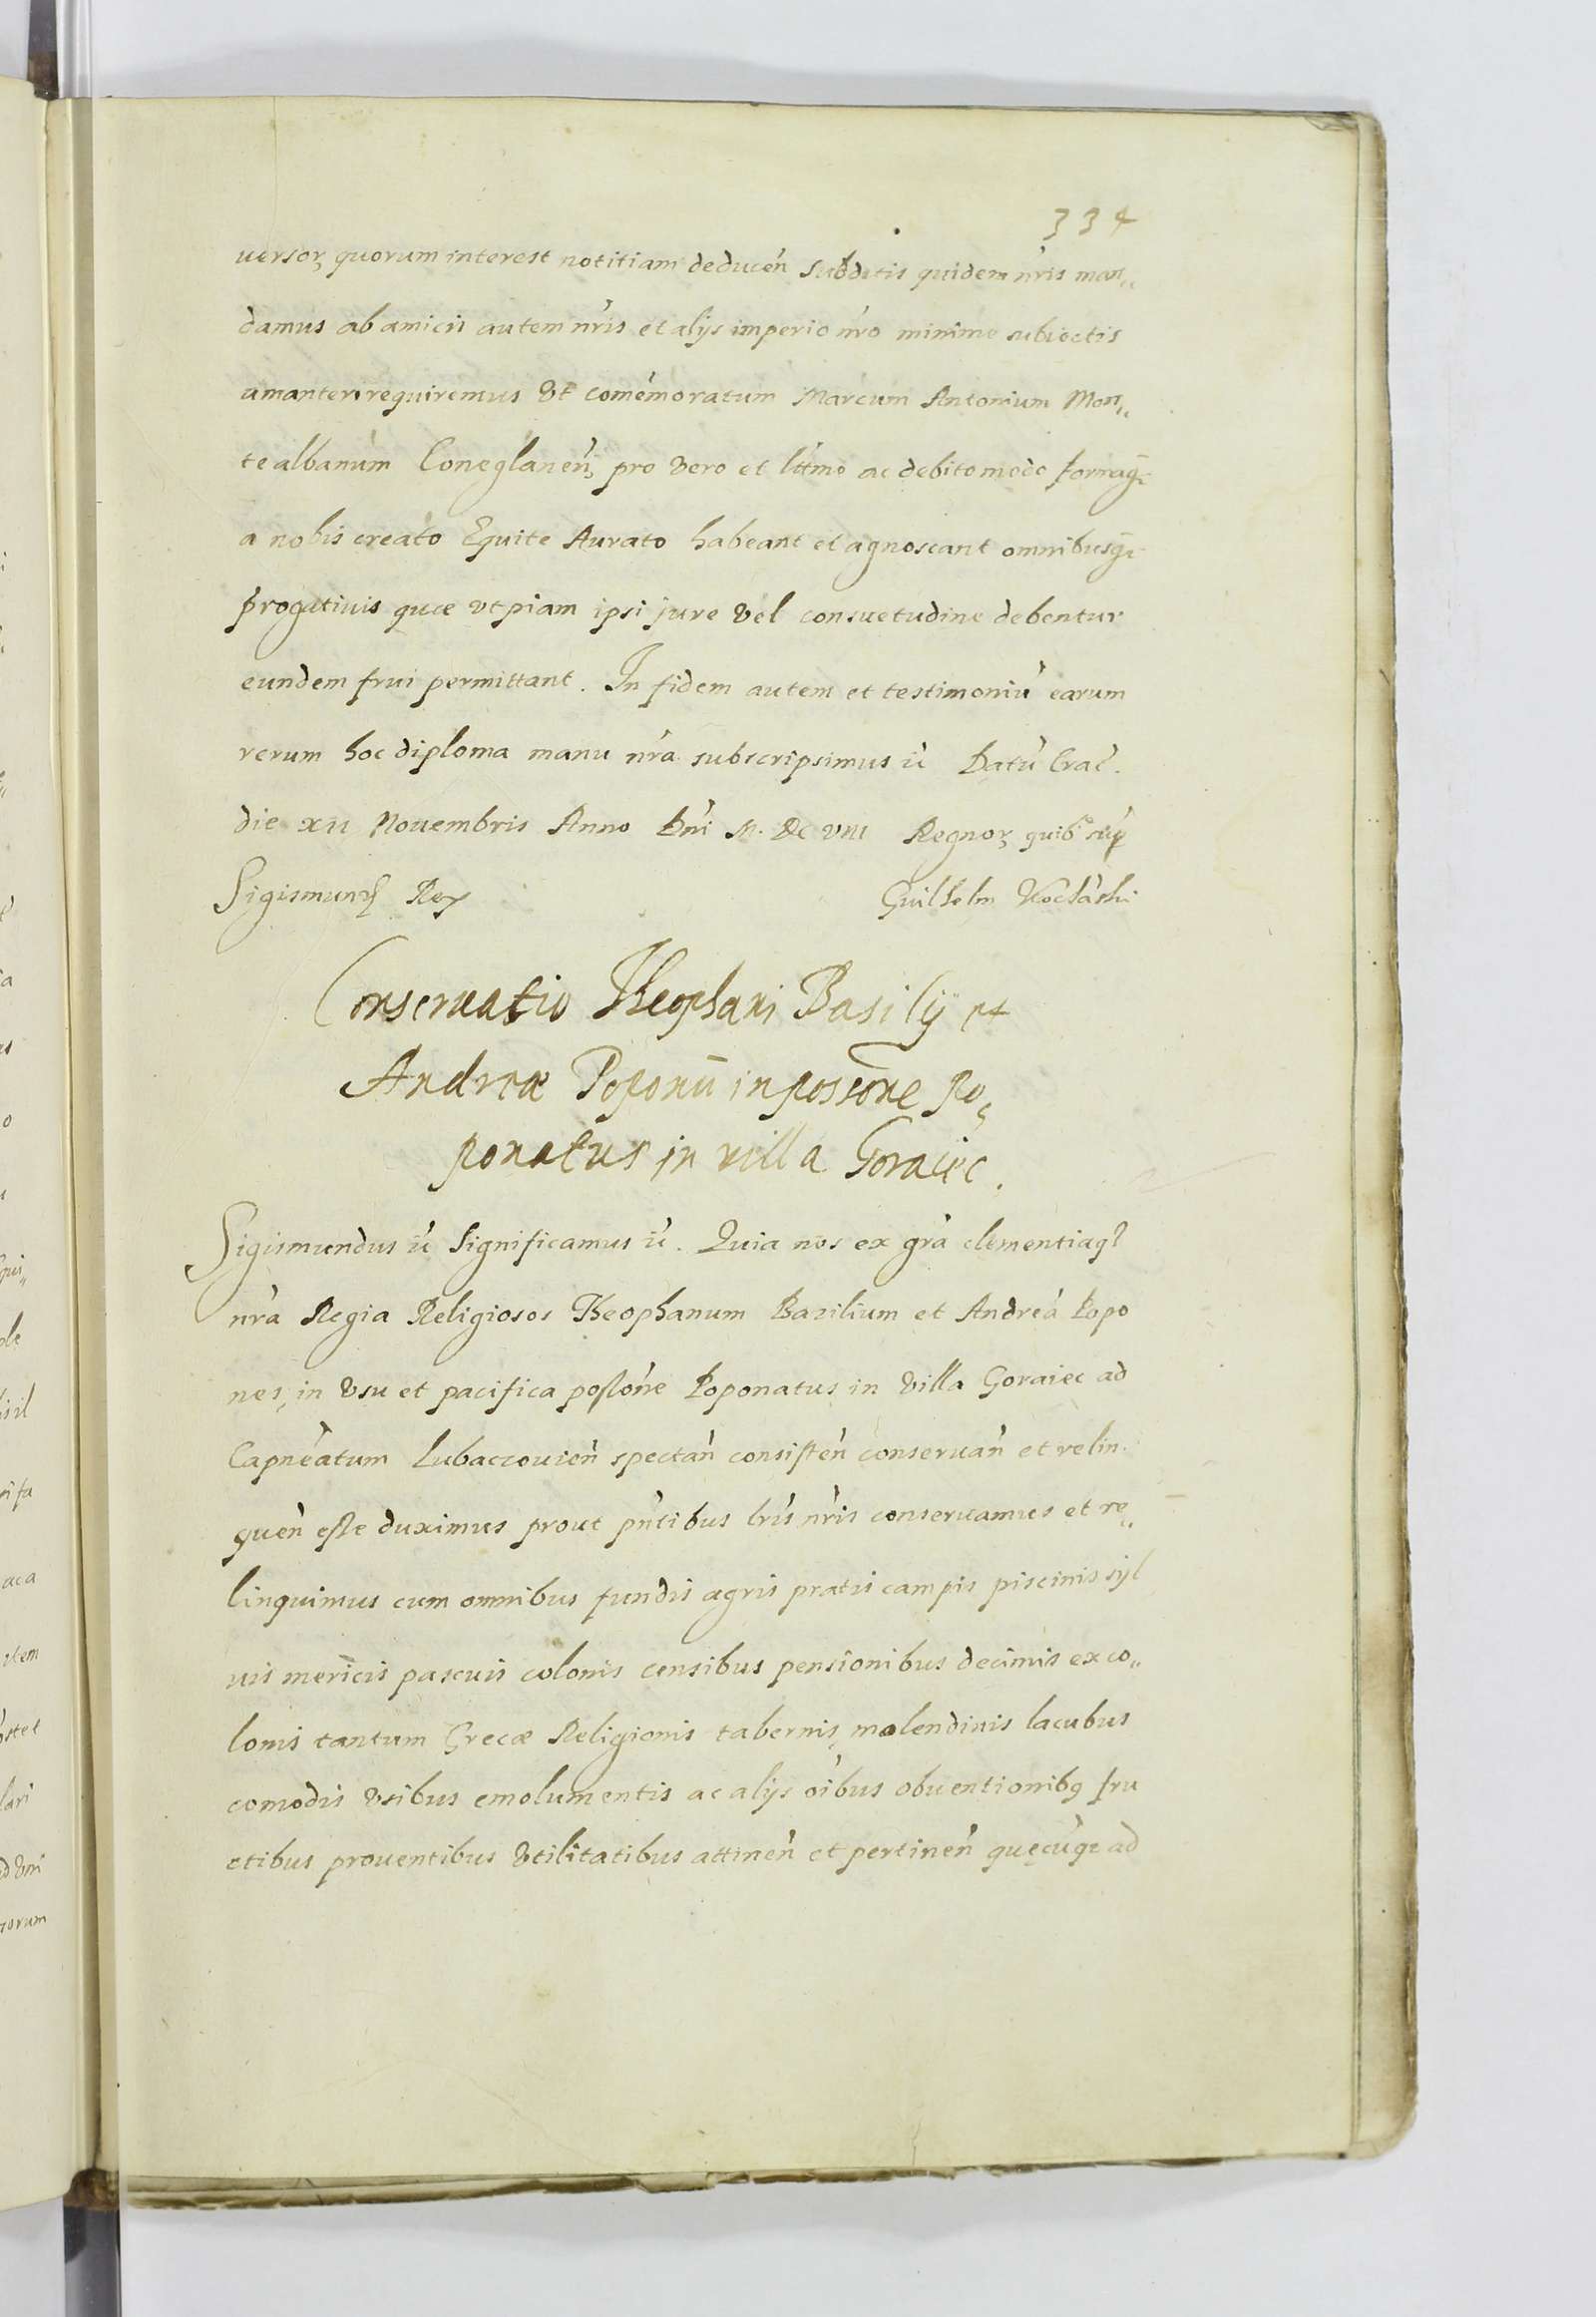 334
uersorꝫ quorum interest notitiam deducen̄ subditis quidem nr̄is man„
damus ab amicis autem nr̄is et alijs imperio nr̄o minime subiectis
amanter requiremus Vt comēmoratum Marcum Antonium Mon„
tealbanum Coneglanen̄, pro vero et lt̄mo ac debito modo formaq̄
a nobis creato Equite Aurato habeant et agnoscant omnibusq̄
progatiuis quae vspiam ipsi jure vel consuetudine debentur
eundem frui permittant. In fidem autem et testimoniū earum
rerum hoc diploma manu nr̄a subscripsimus ic̄ Datū Crac̄.
die xii Nouembris Anno Dn̄i M. DC VIII Regnorꝫ quib9 sup̄
Sigismundꝰ Rex Guilhelm
Conseruatio Theophani Basilij et
Andreæ Poponū in possōne Po„
ponatus in villa Goraiec.
Sigismundus ic̄ Significamus ic̄. Quia nos ex gr̄a clementiaqꝫ
nr̄a Regia Religiosos Theophanum Basilium et Andreā Popo
nes, in vsu et pacifica possōne Poponatus in villa Goraiec ad
Capnēatum Lubaczouien̄ spectān consisten̄ conseruan̄ et relin„
quen̄ esse duximus prout pn̄tibus lr̄is nr̄is conseruamus et re„
linquimus cum omnibus fundis agris pratis campis piscinis syl
uis mericis pascuis colonis censibus pensionibus decimis ex co„
lonis tantum Grecæ Religionis tabernis, molendinis lacubus
comodis vsibus emolumentis ac alijs oībus obuentionibꝰ fru
ctibus prouentibus vtilitatibus attinen̄ et pertinen̄ quęcūqꝫ ad